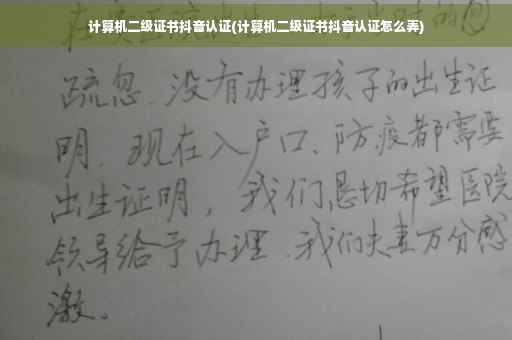 计算机二级证书抖音认证(计算机二级证书抖音认证怎么弄)
疏忽、没有办理孩子的出生证
明、现在入户口、防疫都需要
出生证明，我们恳切希望医院
领导给予办理、我们夫妻万分感
激。